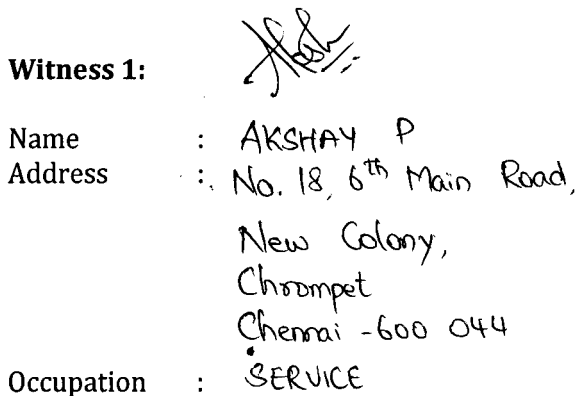 Witness 1:
Name : AKSHAY P
Address : No. 18, 6th Main Road,
New Colony,
Chrompet
Chennai - 600 044
Occupation : SERVICE